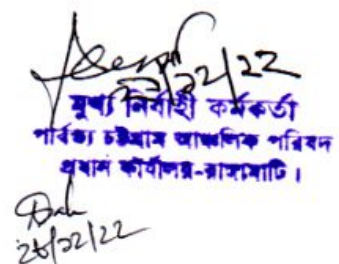 ২২/১২/22
মুখ্য নির্বাহী কর্মকর্তা
পার্বত্য চট্টগ্রাম আঞ্চলিক পরিষদ
প্রধান কার্যালয়-রাঙ্গামাটি।
২৮/১২/22